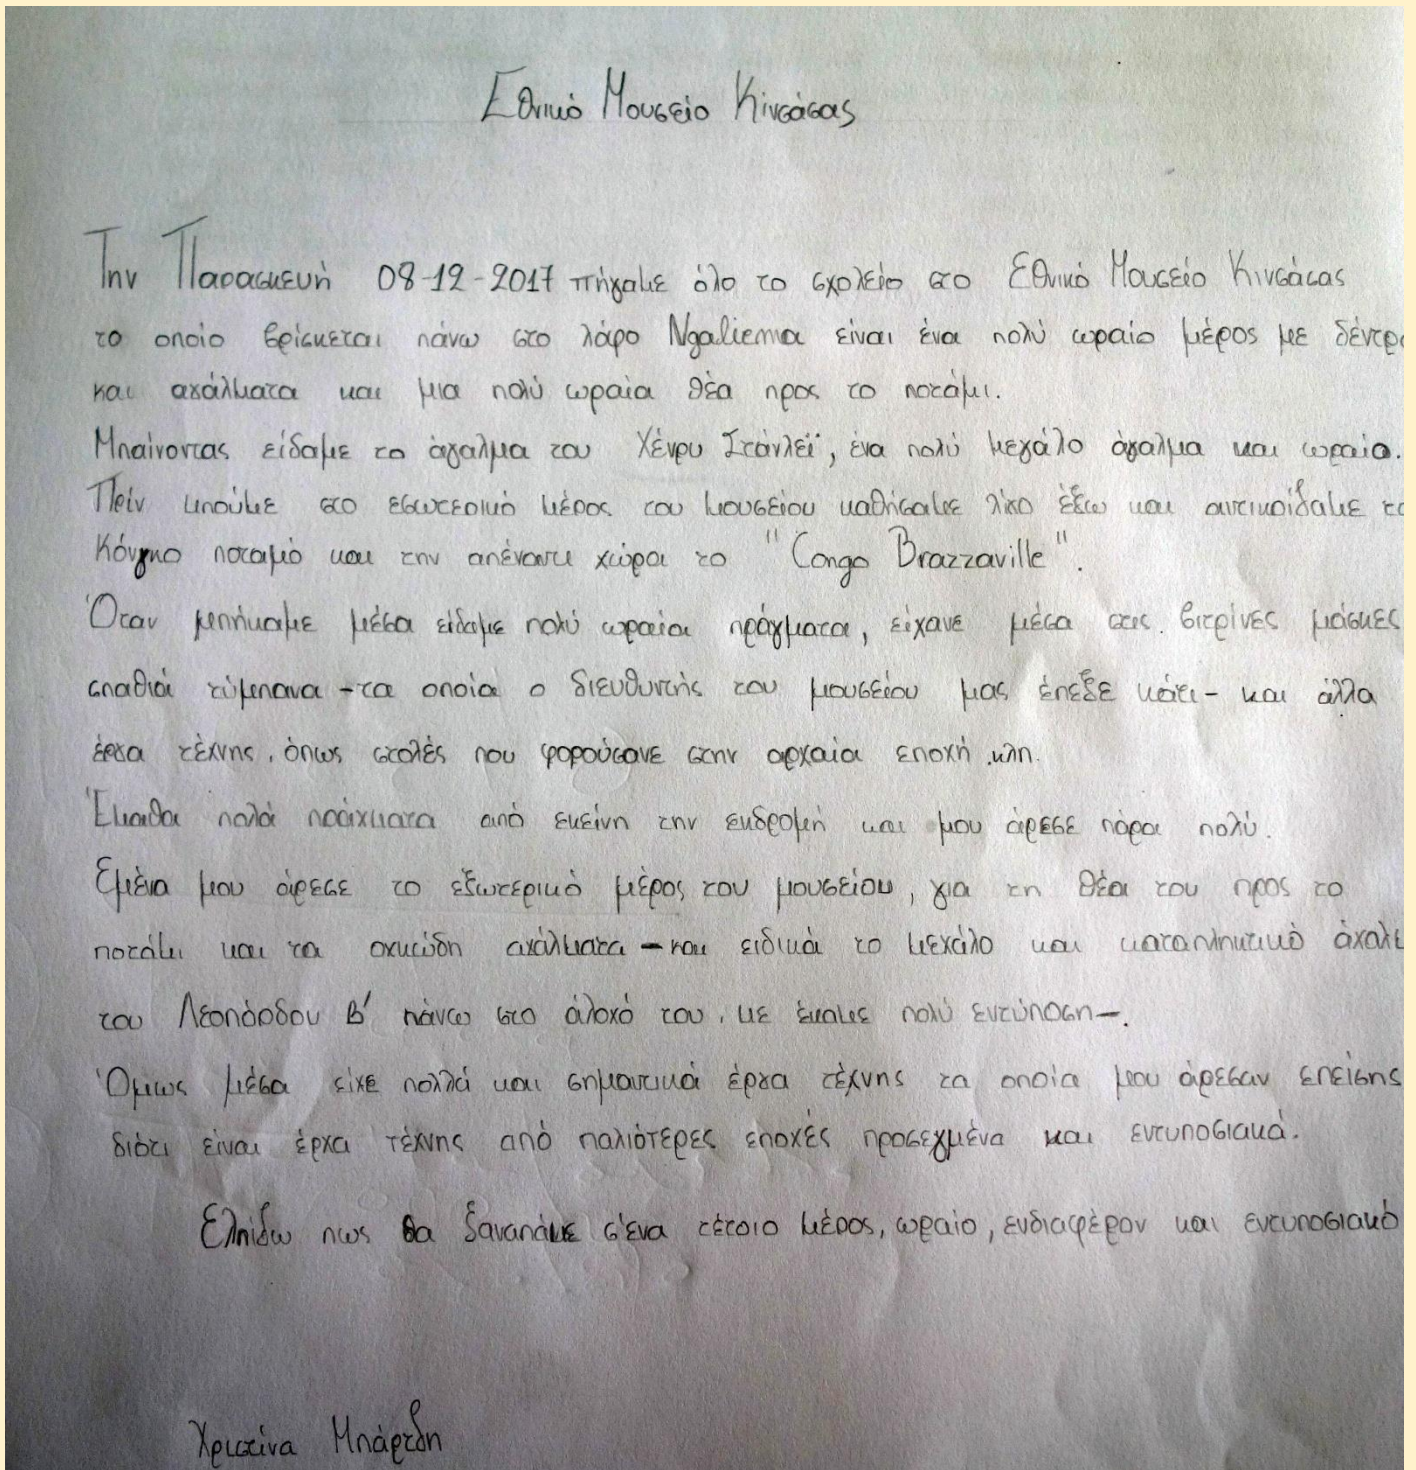 Εθνικό Μουσείο Κινσάσας
Την Παρασκευή 08-12-2017 πήγαμε όλο το σχολείο στο Εθνικό Μουσείο Κινσάσας
το οποίο βρίσκεται πάνω στο λόφο Ngaliema είναι ένα πολύ ωραίο μέρος με δέντρα
και αγάλματα και μια πολύ ωραία θέα προς το ποτάμι.
Μπαίνοντας είδαμε το άγαλμα του Χένρυ Στάνλεϊ, ένα πολύ μεγάλο άγαλμα και ωραίο.
Πρίν μπούμε στο εσωτερικό μέρος του μουσείου καθήσαμε λίγο έξω και αντικρίσαμε το
Κόνγκο ποταμό και την απέναντι χώρα το "Congo Brazzaville".
Όταν μπήκαμε μέσα είδαμε πολύ ωραία πράγματα, είχανε μέσα στις βιτρίνες μάσκες
σπαθιά τύμπανα -τα οποία ο διευθυντής του μουσείου μας έπεξε κάτι- και άλλα
έργα τέχνης, όπως στολές που φορούσανε στην αρχαία εποχή κλπ.
Έμαθα πολά πράγματα από εκείνη την εκδρομή και μου άρεσε πάρα πολύ.
Εμένα μου άρεσε το εξωτερικό μέρος του μουσείου, για τη θέα του προς το
ποτάμι και τα ογκώδη αγάλματα -και ειδικά το μεγάλο και καταπληκτικό
του Λεοπόρδου Β' πάνω στο άλογό του, με έκαμε πολύ εντύποση-.
Όμως μέσα είχε πολλά και σημαντικά έργα τέχνης τα οποία μου άρεσαν επείσης
διότι είναι έργα τέχνης από παλιότερες εποχές προσεγμένα και εντυποσιακά.
Ελπίζω πως θα ξαναπάμε σ'ένα τέτοιο μέρος, ωραίο, ενδιαφέρον και εντυποσιακό
Χριστίνα